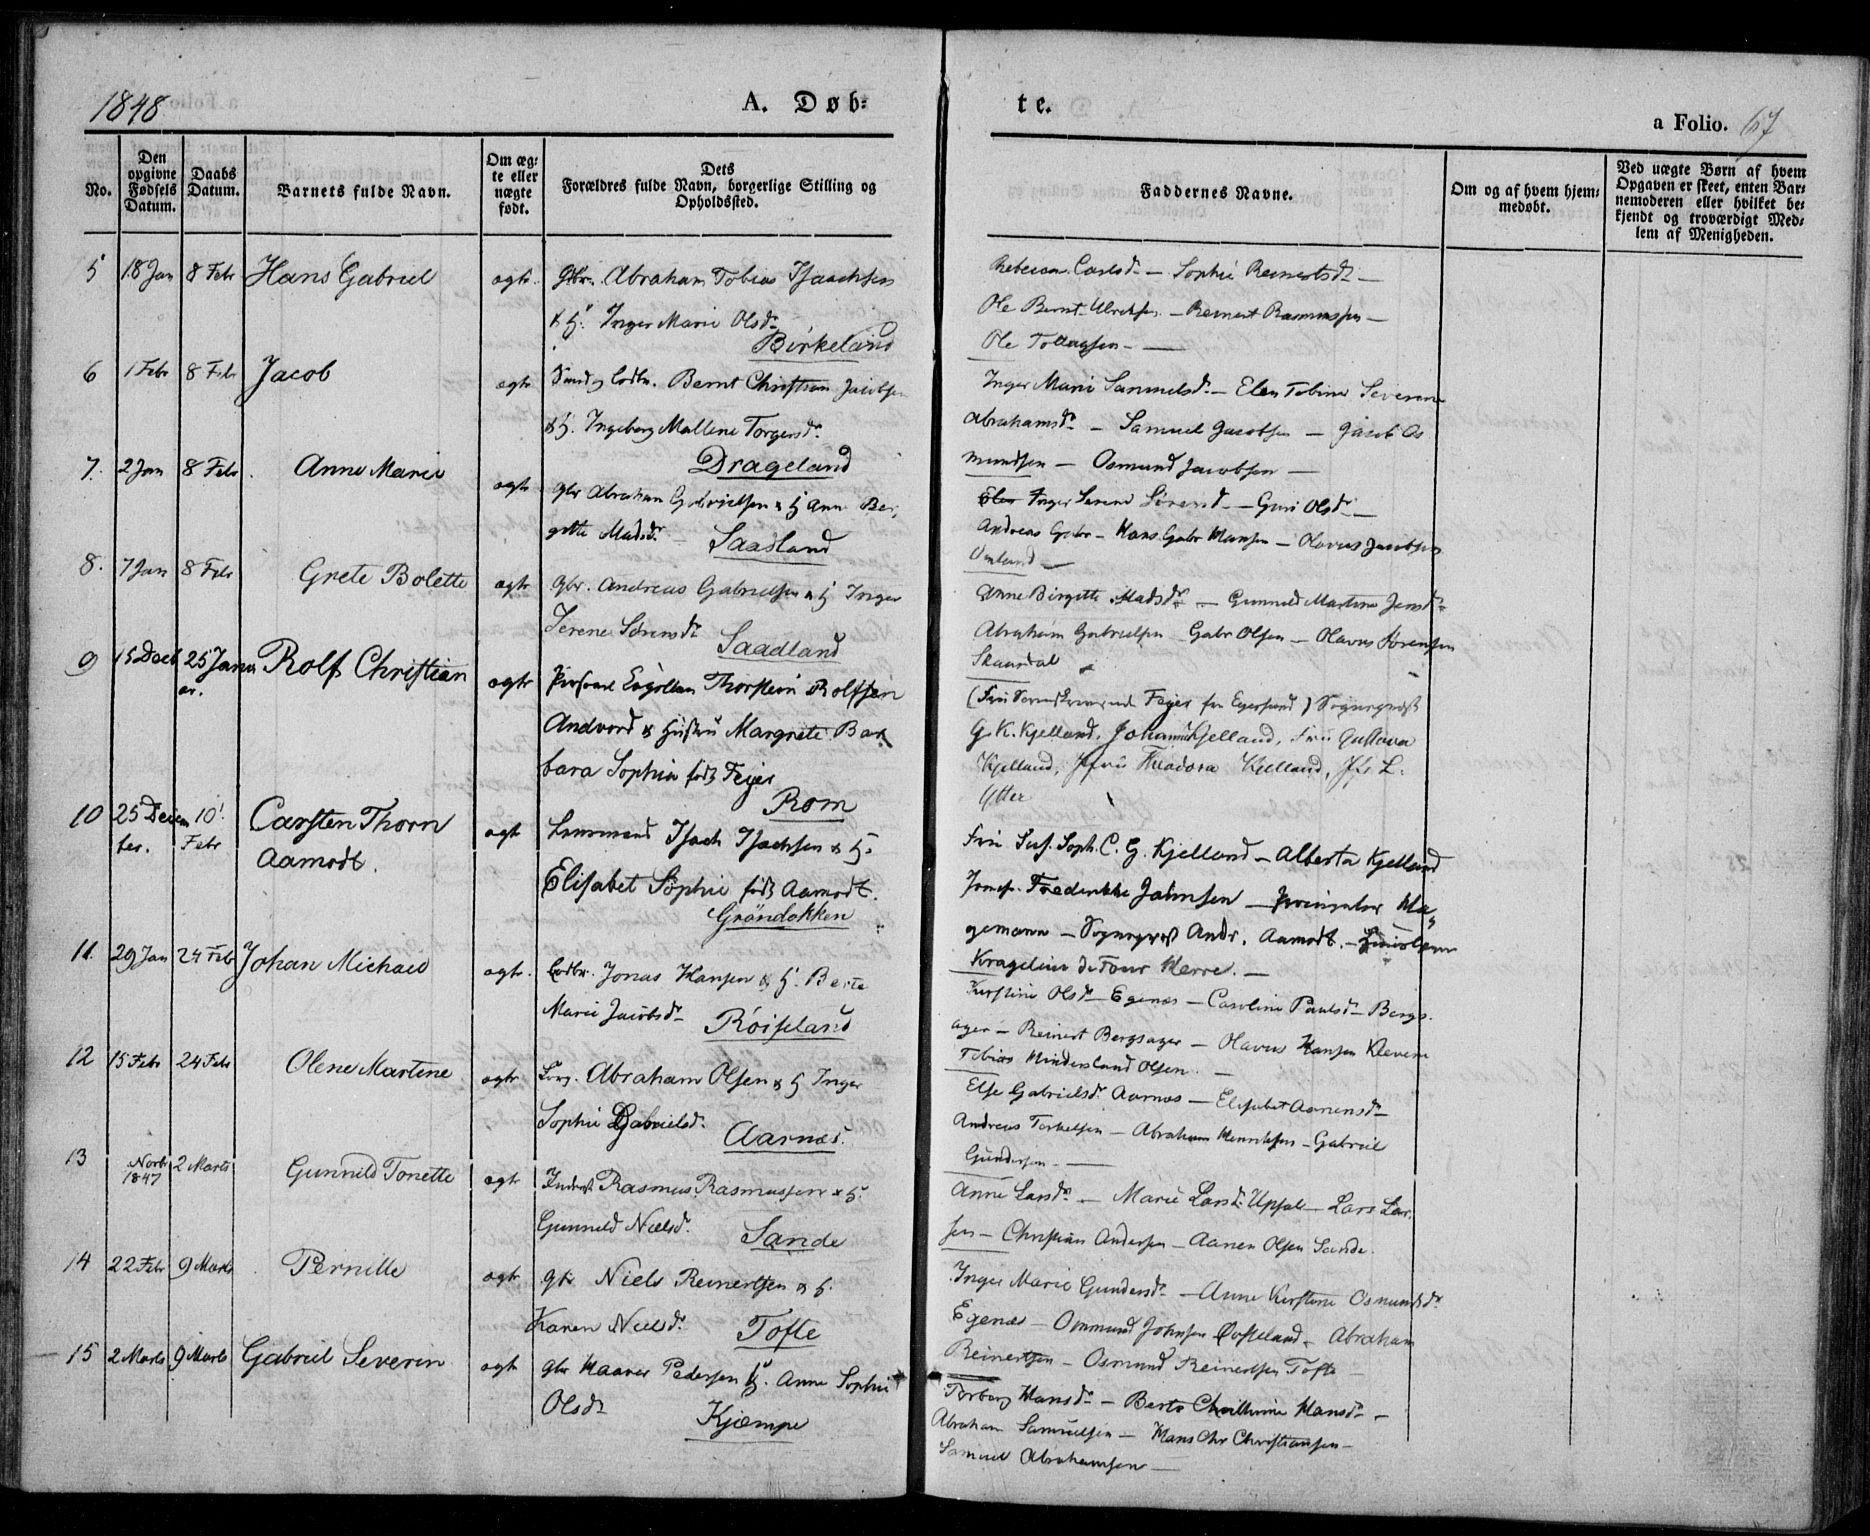 1848
A. Døb-
te.
a Folio. 67
No.
Den opgivne Fødsels Datum.
Daabs Datum.
Barnets fulde Navn.
Om æg-
te eller
uægte
født.
Dets
Forældres fulde Navn, borgerlige Stilling og
Opholdssted.
Faddernes Navne.
Om og af hvem hjem-
medøbt.
Ved uægte Børn af hvem
Opgaven er skeet, enten Bar-
nemoderen eller hvilket be-
kjendt og troværdigt Med-
lem af Menigheden.
5 18 Jan 8 Febr Hans Gabriel ægte Gbr. Abraham Tobias Isaachsen
& H. Inger Marie Olsdr
Birkeland
Rebecca Carlsdr — Sophie Reinertsdr —
Ole Bernt Ulrichsen — Reinert Rasmussen —
Ole Tollagsen —
6 1 Febr 8 Febr Jacob ægte Bernt Christian Jacobsen
& H. Ingeborg Mallene Torgersdr
Drageland
Inger Marie Samuelsdr — Elen Tobine Severine
Abrahamsdr — Samuel Jacobsen — Jacob Os
mundsen — Osmund Jacobsen —
7. 2 Jan 8 Febr Anne Marie ægte gbr Abraham Gabrielsen & H Ann Ber,
gitte Madsdr — Saadland
Inger Serene Sørensd. — Guri Olsdr —
Andreas Gabr — Hans Gabr Hansen — Olavus Jacobsen
Omland —
8. 7 Jan 8 Febr Grete Bolette ægte gbr. Andreas Gabrielsen & H Inger
Serene Sørensdr Saadland
Anne Birgitte Madsdr — Gunnild Martine Jensdr
Abraham Gabrielsen — Gabr Olsen — Olavus Sørensen
Skaardal
9 15 Decb 25 Janu
ar. Rolf Christian ægte Thorstein Rolfsen
Andvord & Hustru Margrete Bar
bara Sophie født Feyer
Rom
Feyer fra Egersund) Sognepræst
G. K. Kjelland, Johanne Kjelland, Frü Gustava
Kjelland, Jfrü Theodora Kjelland, Jfr L.
Ytter
10 25 Decem
ber. 10'
Febr Carsten Thorn
Aamodt. ægte Lensmand Isach Isachsen & H.
Elisabet Sophie født Aamodt.
Gröndokken
Frü Sus. Soph. C. G. Kjelland — Alberta Kjelland
Jomfr. Frederikke Jahnsen — Ha„
gemann — Sognepræst Andr. Aamodt. —
Kragelius de Four Herre. —
11. 29 Jan 24 Febr Johan Michael ægte. Lodbr. Jonas Hansen & H. Berte
Marie Jacobsdr — Röiseland
Kirstine Olsdr — Egenæs — Caroline Paulsdr Bergs.
ager — Reinert Bergsager — Olavus Hansen Kleven
Tobias Hindersland Olsen. —
12 15 Febr 24 Febr Olene Martene ægte Abraham Olsen & H Inger
Sophie Gabrielsdr Aarnæs.
Else Gabrielsdr Aarnæs — Elisabet Aanensdr —
Andreas Torkelsen — Abraham Henriksen — Gabriel
Gundersen. —
13 Novbr
1847 2 Marts Gunnild Tonette ægte Inderst Rasmus Rasmussen & H.
Gunnild Nielsdr Sande
Anne Larsdr — Marie Larsdr Upsal — Lars Lar,
sen — Christian Andersen — Aanen Olsen Sande.
14 22 Febr 9 Marts Pernille ægte gbr Niels Reinertsen & H.
Karen Nielsdr. Tofte
Inger Marie Gundersdr — Anne Kirstene Osmundsdr
Egenæs — Ommund Johnsen Øvsteland — Abraham
Reinertsen — Osmund Reinertsen Tofte —
15 2 Marts 9 Marts Gabriel Severin ægte gbr Haaver Pedersen & H. Anne Sophie
Olsdr Kjæmpe
Torborg Hansdr — Berte Cathrine Hansdr —
Abraham Samuelsen — Hans Chr Christiansen —
Samuel Abrahamsen —